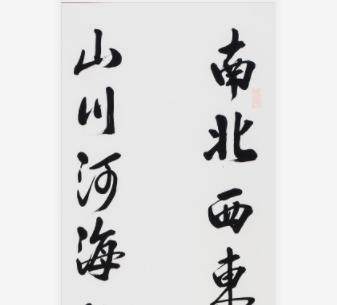 南北西東
山川河海